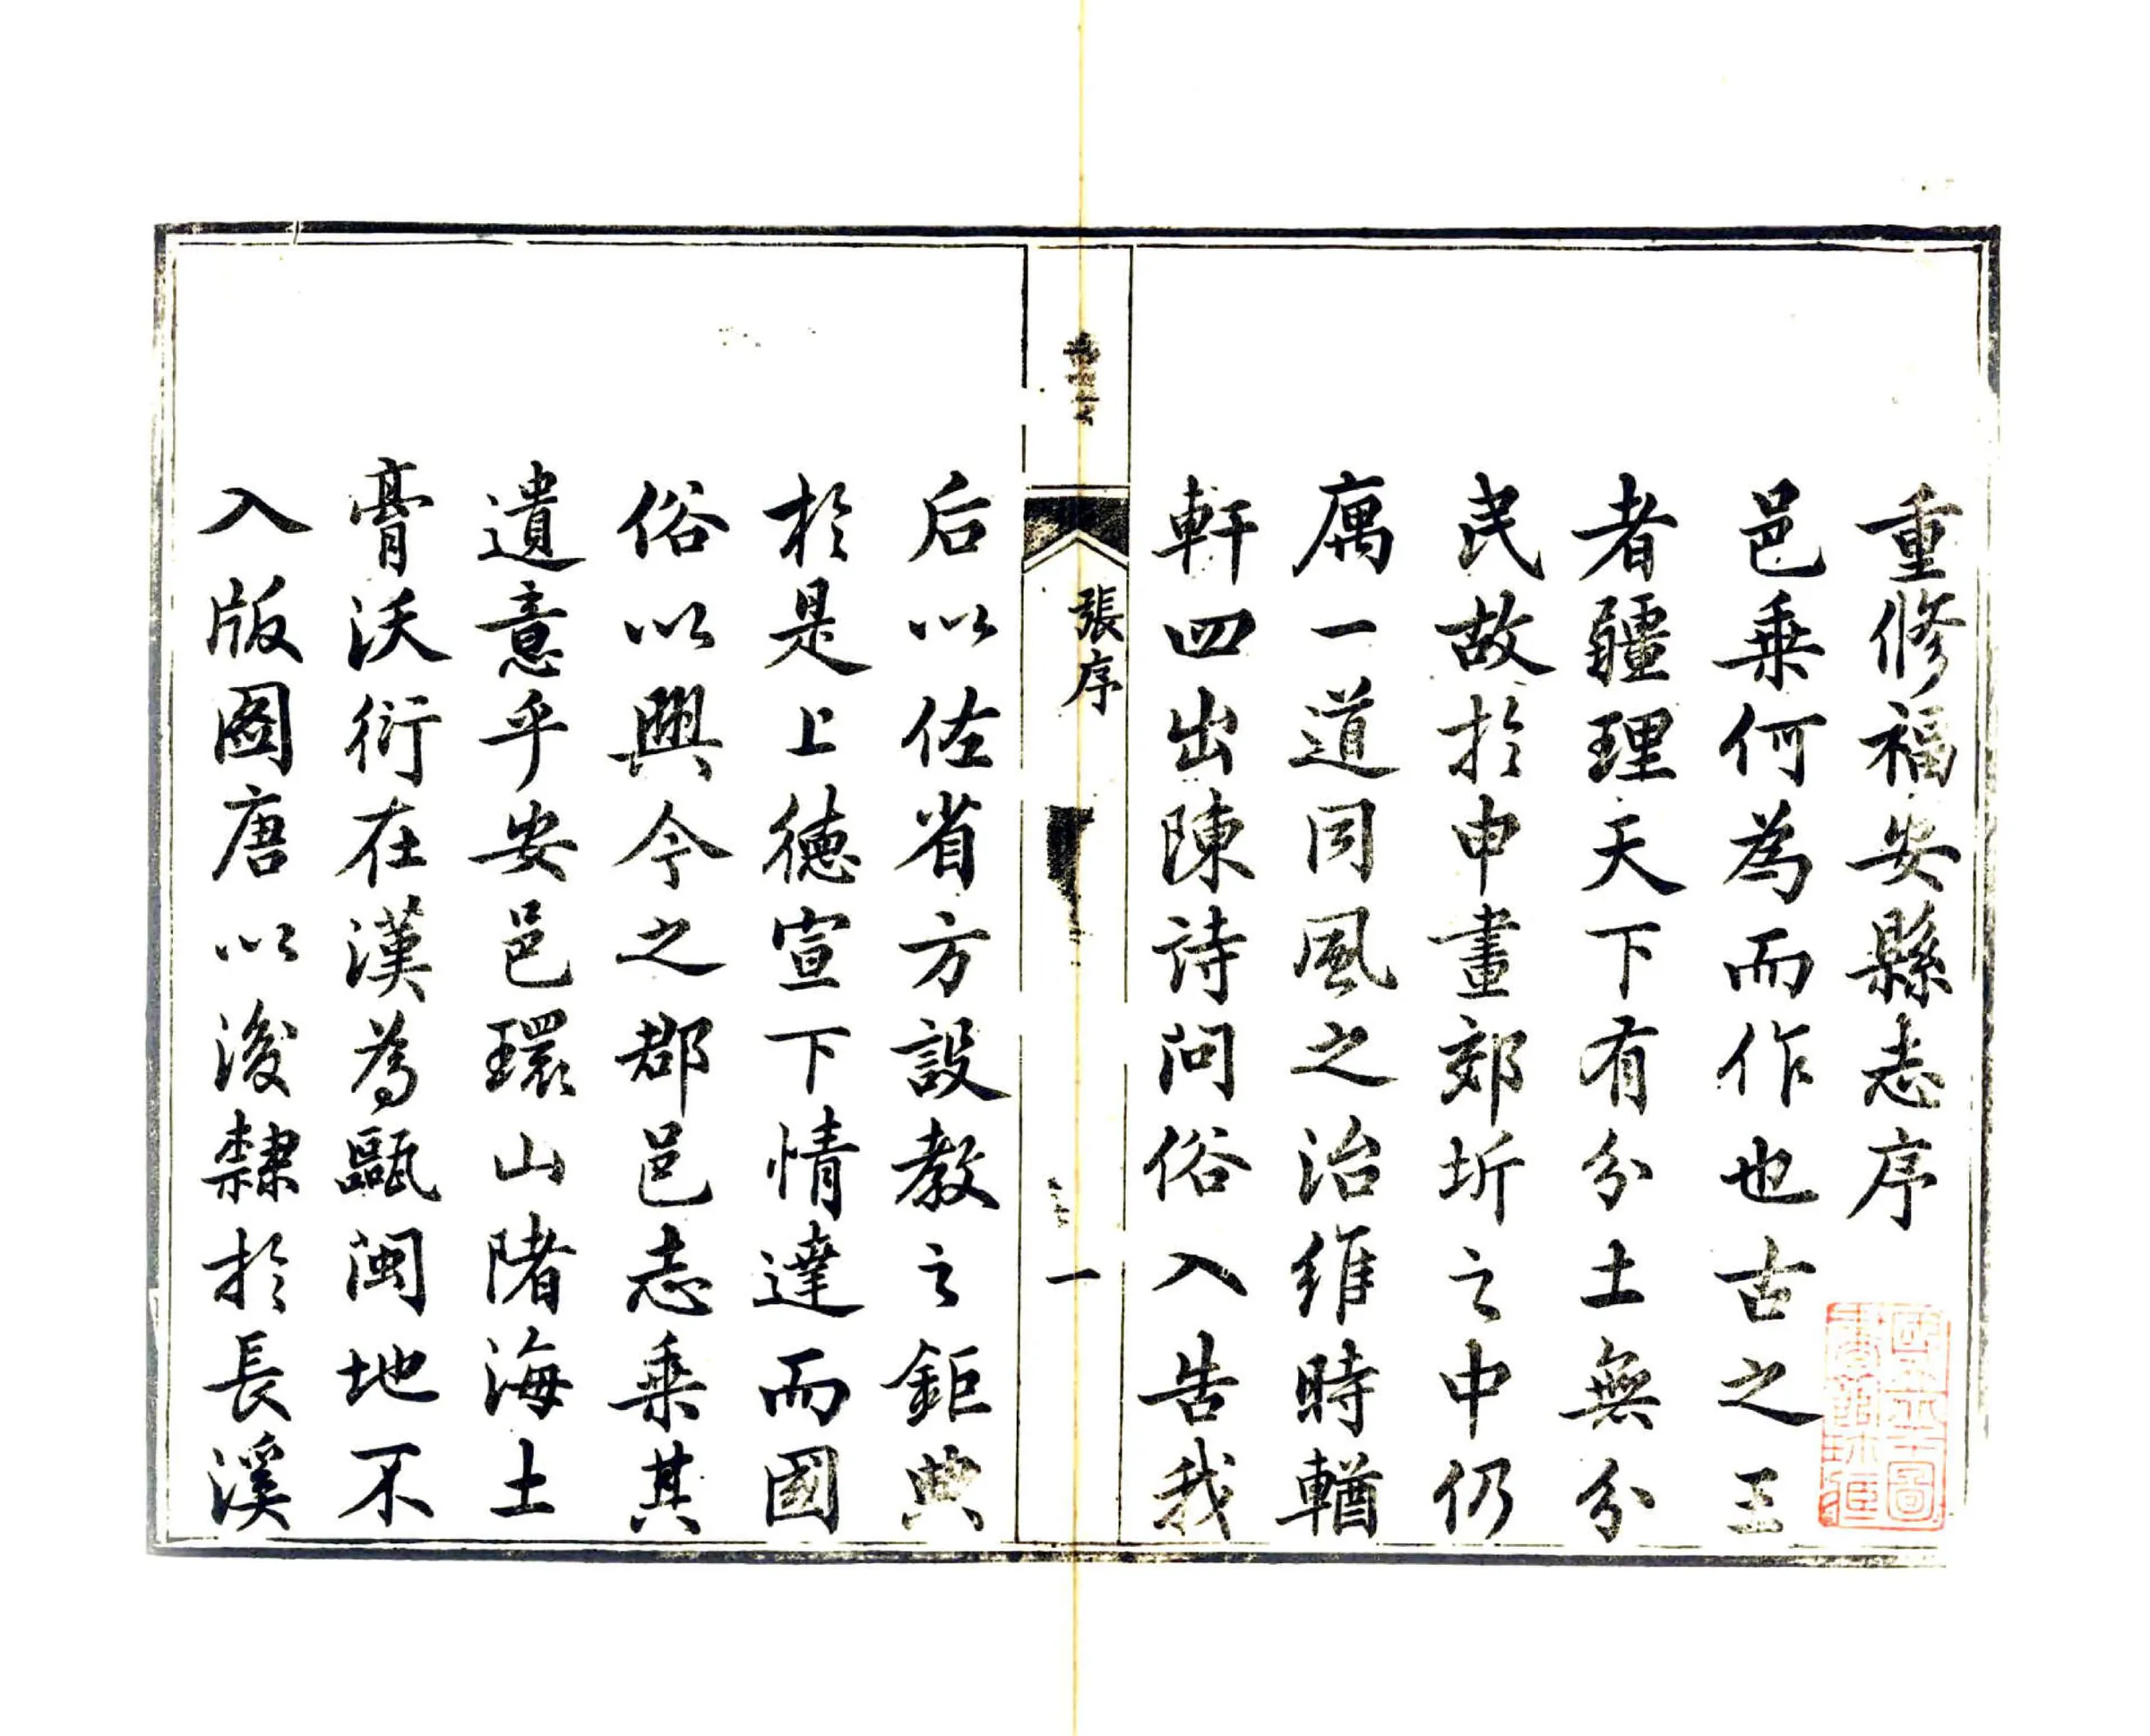 重修福安縣志序
邑乘何為而作也古之王
者疆理天下有分土無分
民故於申畫郊圻之中仍
厲一道同風之治維時輶
軒四出陳詩問俗入告我
張序
一
后以佐省方設教之鉅典
於是上德宣下情達而國
俗以興今之郡邑志乘其
遺意乎安邑環山陼海土
膏沃衍在漢為甌閩地不
入版圖唐以後隸於長溪